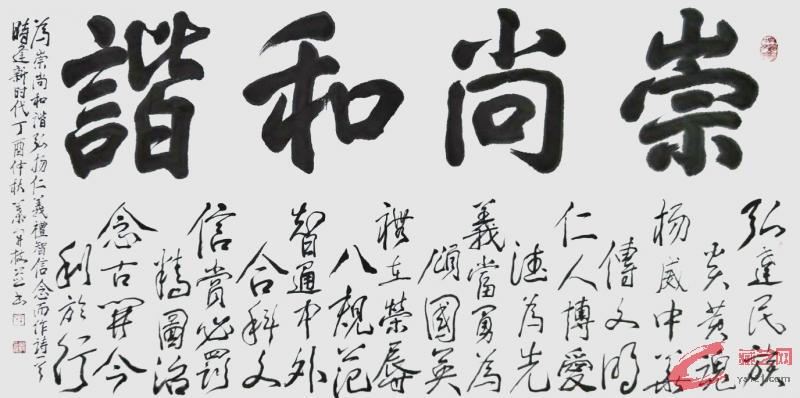 崇尚和諧
弘達民族
炎黄魂
揚威中華
傳文明
仁人博愛
德為先
義當勇為
傾國英
禮在榮辱
八規范
智通中外
合科文
信賞必罰
精圖治
念古開今
利於行
為崇尚和谐弘扬仁義禮智信念而作詩
時逢新时代丁酉仲秋